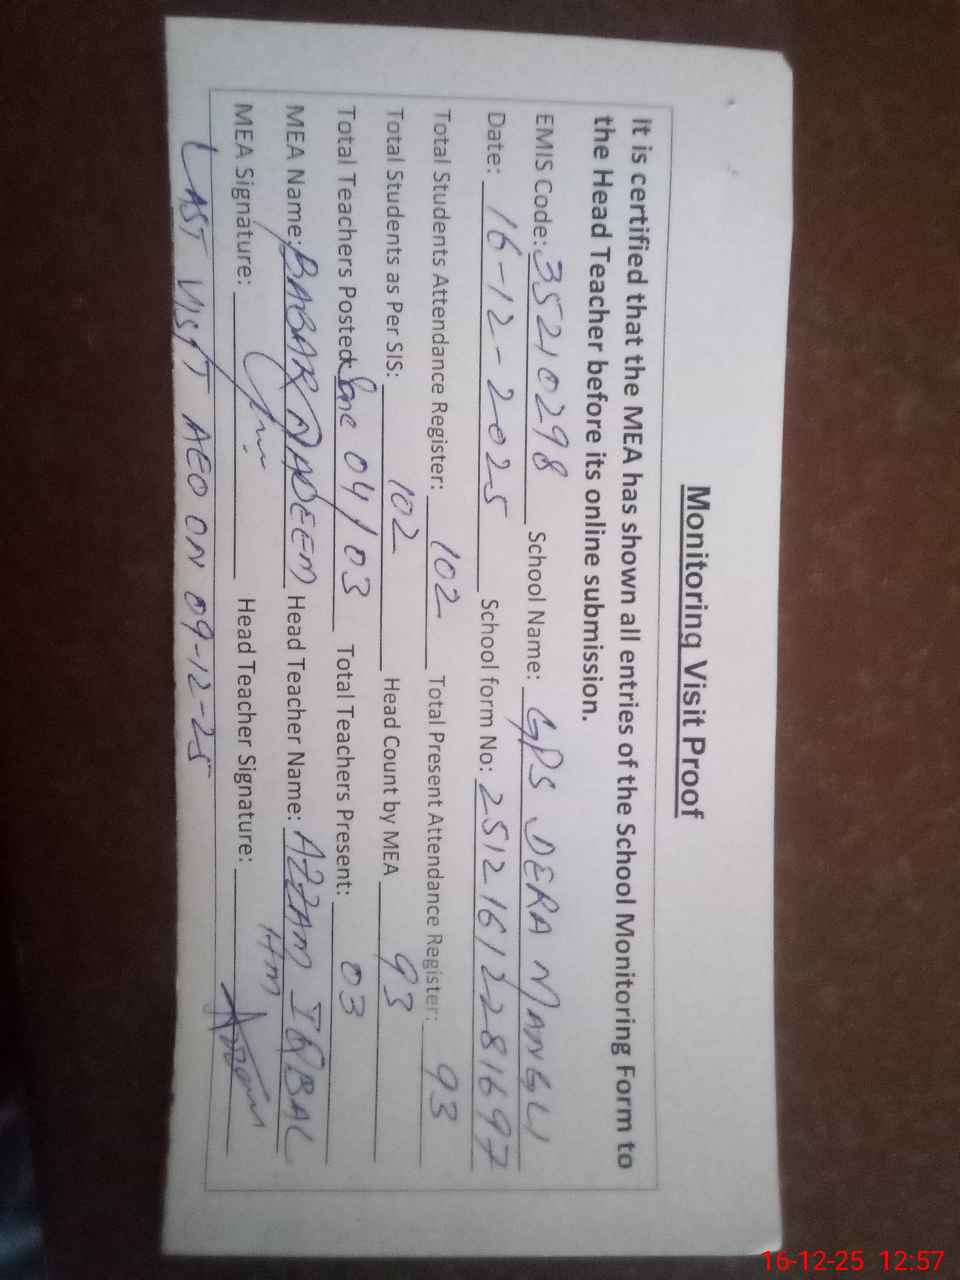 Monitoring Visit Proof
It is certified that the MEA has shown all entries of the School Monitoring Form to
the Head Teacher before its online submission.
EMIS Code: 35210298 School Name: GPS DERA MANGLI
Date: 16-12-2025 School form No: 25121612281697
Total Students Attendance Register: 102 Total Present Attendance Register: 93
Total Students as Per SIS: 102 Head Count by MEA 93
Total Teachers Posted: Sne 04/03 Total Teachers Present: 03
MEA Name: BABAR NADEEM Head Teacher Name: AZZAM IQBAL
HM
MEA Signature: Head Teacher Signature:
LAST VISIT AEO ON 09-12-25
16-12-25 12:57